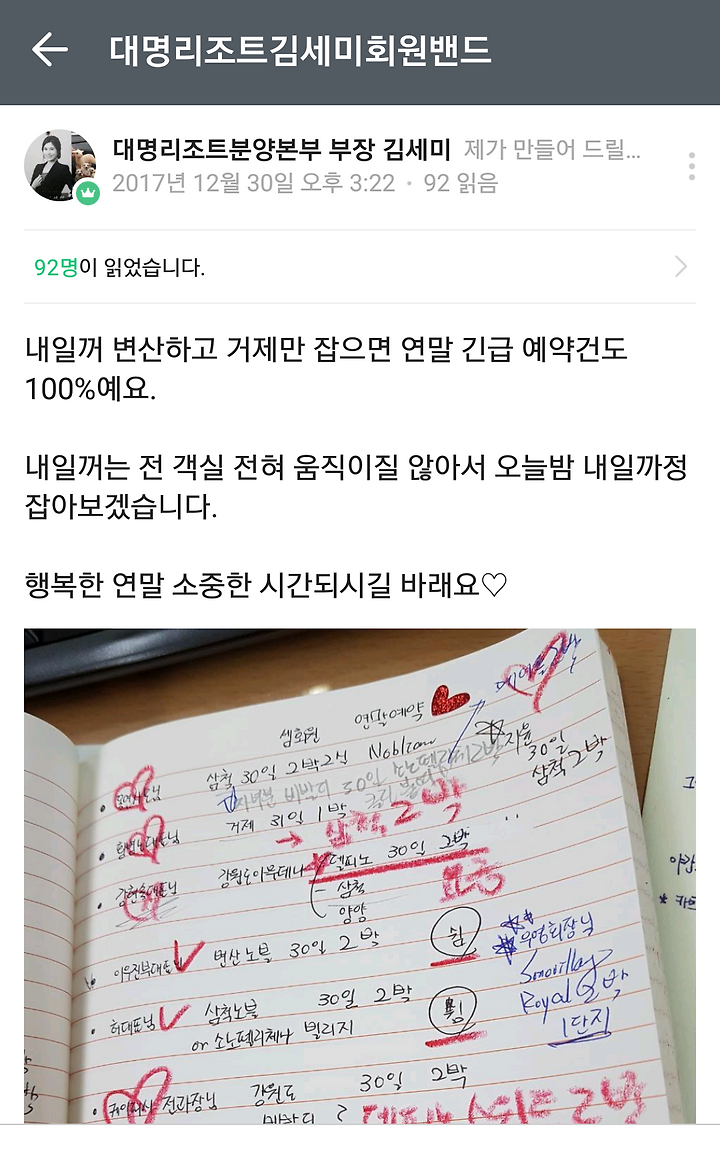 대명리조트김세미회원밴드
대명리조트분양본부 부장 김세미 제가 만들어 드릴...
2017년 12월 30일 오후 3:22 · 92 읽음
92명이 읽었습니다.
내일꺼 변산하고 거제만 잡으면 연말 긴급 예약건도
100%예요.
내일꺼는 전 객실 전혀 움직이질 않아서 오늘밤 내일까정
잡아보겠습니다.
행복한 연말 소중한 시간되시길 바래요♡
셈회원 연말예약
삼척 30일 2박2실 Noblian
지윤
30일
삼척 2박
거제 31일 1박
→ 삼척 2박
강원도아무데나
델피노 30일 2박
요금
삼척
양양
이우진부대표 변산노블 30일 2박
쉼
우영회장님
허대표님 삼척노블 30일 2박
or 소노펠리체나 빌리지
쉼
Royal 2박
1단지
전과장님 강원도 30일 2박
비발디
2박